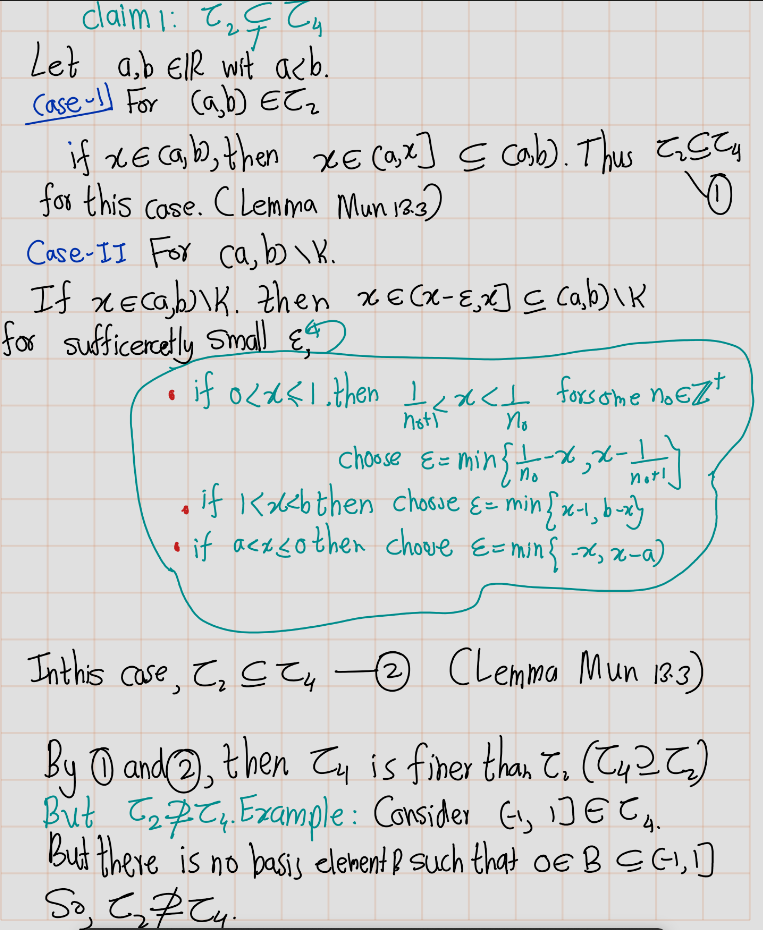 claim 1: τ₂ ⊊ τ₄
Let a,b ∈ ℝ wit a<b.
Case-I) For (a,b) ∈ τ₂
if x ∈ (a,b), then x ∈ (a,x] ⊆ (a,b). Thus τ₂ ⊆ τ₄
for this case. (Lemma Mun 13.3) ①
Case-II For (a,b)\K.
If x ∈ (a,b)\K. then x ∈ (x-ε,x] ⊆ (a,b)\K
for sufficercetly small ε,
• if 0<x≤1. then 1/(n₀+1) < x < 1/n₀ for some n₀ ∈ ℤ⁺
choose ε = min{1/n₀ - x, x - 1/(n₀+1)}
• if 1<x<b then choose ε = min{x-1, b-x}
• if a<x≤0 then choose ε = min{ -x, x-a)
In this case, τ₂ ⊆ τ₄ — ② (Lemma Mun 13.3)
By ① and ②, then τ₄ is finer than τ₂ (τ₄ ⊇ τ₂)
But τ₂ ⊉ τ₄. Example: Consider (-1, 1] ∈ τ₄.
But there is no basis element B such that 0 ∈ B ⊆ (-1,1]
So, τ₂ ⊉ τ₄.